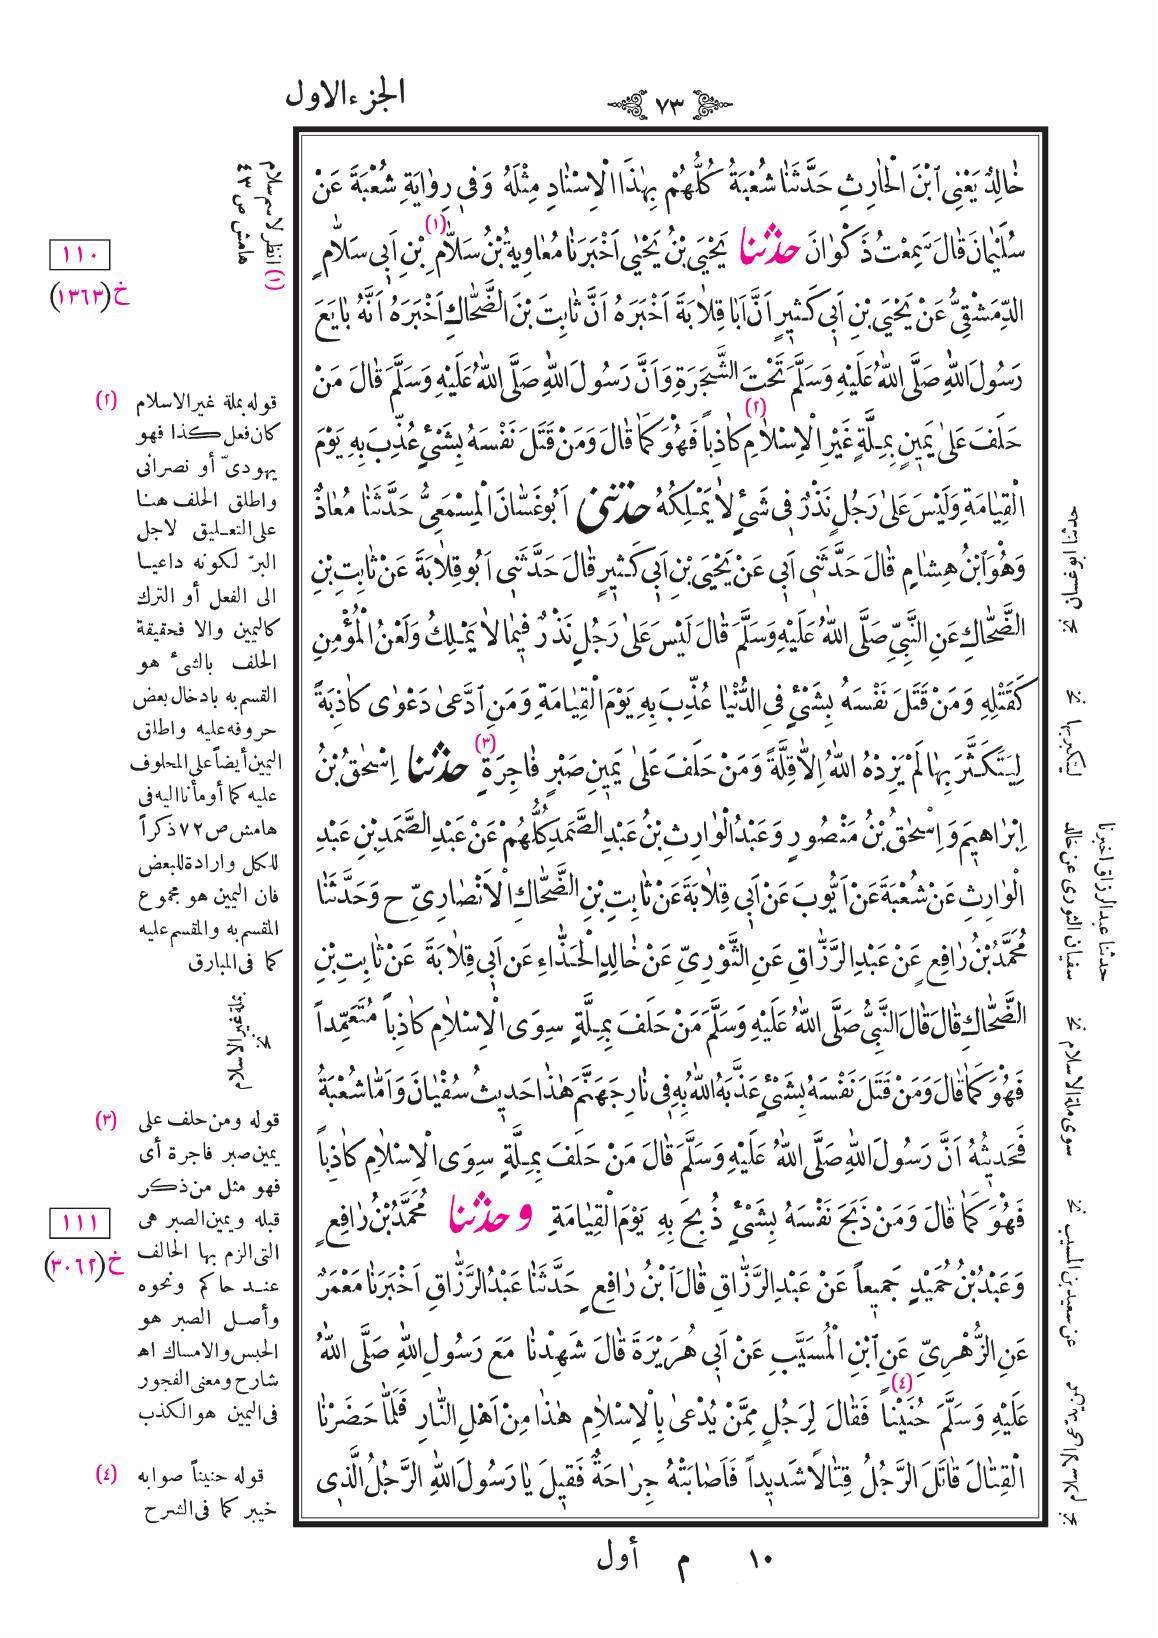 الجزء الاول
٧٣
خَالِدٌ يَعْنِى ٱبْنَ الْحَارِثِ حَدَّثَنَا شُعْبَةُ كُلُّهُمْ بِهٰذَا الْاِسْنَادِ مِثْلَهُ وَفِى رِوَايَةِ شُعْبَةَ عَنْ
سُلَيْمَانَ قَالَ سَمِعْتُ ذَكْوَانَ حدثنا يَحْيَى بْنُ يَحْيٰى اَخْبَرَنَا مُعَاوِيَةُ بْنُ سَلَّامِ (١) بْنِ اَبِى سَلَّامٍ
الدِّمَشْقِىُّ عَنْ يَحْيَى بْنِ اَبِى كَثِيرٍ اَنَّ اَبَا قِلَابَةَ اَخْبَرَهُ اَنَّ ثَابِتَ بْنَ الضَّحَّاكِ اَخْبَرَهُ اَنَّهُ بَايَعَ
رَسُولَ اللّٰهِ صَلَّى اللّٰهُ عَلَيْهِ وَسَلَّمَ تَحْتَ الشَّجَرَةِ وَاَنَّ رَسُولَ اللّٰهِ صَلَّى اللّٰهُ عَلَيْهِ وَسَلَّمَ قَالَ مَنْ
حَلَفَ عَلىٰ يَمِينٍ بِمِلَّةٍ غَيْرِ الْاِسْلَامِ (٢) كَاذِباً فَهُوَ كَمَا قَالَ وَمَنْ قَتَلَ نَفْسَهُ بِشَىْءٍ عُذِّبَ بِهِ يَوْمَ
الْقِيَامَةِ وَلَيْسَ عَلىٰ رَجُلٍ نَذْرٌ فِى شَىْءٍ لَا يَمْلِكُهُ حدثنى اَبُو غَسَّانَ الْمِسْمَعِىُّ حَدَّثَنَا مُعَاذٌ
وَهُوَ ٱبْنُ هِشَامٍ قَالَ حَدَّثَنِى اَبِى عَنْ يَحْيَى بْنِ اَبِى كَثِيرٍ قَالَ حَدَّثَنِى اَبُو قِلَابَةَ عَنْ ثَابِتِ بْنِ
الضَّحَّاكِ عَنِ النَّبِىِّ صَلَّى اللّٰهُ عَلَيْهِ وَسَلَّمَ قَالَ لَيْسَ عَلىٰ رَجُلٍ نَذْرٌ فِيمَا لَا يَمْلِكُ وَلَعْنُ الْمُؤْمِنِ
كَقَتْلِهِ وَمَنْ قَتَلَ نَفْسَهُ بِشَىْءٍ فِى الدُّنْيَا عُذِّبَ بِهِ يَوْمَ الْقِيَامَةِ وَمَنِ ٱدَّعىٰ دَعْوٰى كَاذِبَةً
لِيَتَكَثَّرَ بِهَا لَمْ يَزِدْهُ اللّٰهُ اِلَّا قِلَّةً وَمَنْ حَلَفَ عَلىٰ يَمِينِ صَبْرٍ فَاجِرَةٍ (٣) حدثنا اِسْحٰقُ بْنُ
اِبْرَاهِيمَ وَاِسْحٰقُ بْنُ مَنْصُورٍ وَعَبْدُ الْوَارِثِ بْنُ عَبْدِ الصَّمَدِ كُلُّهُمْ عَنْ عَبْدِ الصَّمَدِ بْنِ عَبْدِ
الْوَارِثِ عَنْ شُعْبَةَ عَنْ اَيُّوبَ عَنْ اَبِى قِلَابَةَ عَنْ ثَابِتِ بْنِ الضَّحَّاكِ الْاَنْصَارِىِّ ح وَحَدَّثَنَا
مُحَمَّدُ بْنُ رَافِعٍ عَنْ عَبْدِ الرَّزَّاقِ عَنِ الثَّوْرِىِّ عَنْ خَالِدٍ الْحَذَّاءِ عَنْ اَبِى قِلَابَةَ عَنْ ثَابِتِ بْنِ
الضَّحَّاكِ قَالَ قَالَ النَّبِىُّ صَلَّى اللّٰهُ عَلَيْهِ وَسَلَّمَ مَنْ حَلَفَ بِمِلَّةٍ سِوَى الْاِسْلَامِ كَاذِباً مُتَعَمِّداً
فَهُوَ كَمَا قَالَ وَمَنْ قَتَلَ نَفْسَهُ بِشَىْءٍ عَذَّبَهُ اللّٰهُ بِهِ فِى نَارِ جَهَنَّمَ هٰذَا حَديِثُ سُفْيَانَ وَاَمَّا شُعْبَةُ
فَحَدِيثُهُ اَنَّ رَسُولَ اللّٰهِ صَلَّى اللّٰهُ عَلَيْهِ وَسَلَّمَ قَالَ مَنْ حَلَفَ بِمِلَّةٍ سِوَى الْاِسْلَامِ كَاذِباً
فَهُوَ كَمَا قَالَ وَمَنْ ذَبَحَ نَفْسَهُ بِشَىْءٍ ذُبِحَ بِهِ يَوْمَ الْقِيَامَةِ وحدثنا مُحَمَّدُ بْنُ رَافِعٍ
وَعَبْدُ بْنُ حُمَيْدٍ جَمِيعاً عَنْ عَبْدِ الرَّزَّاقِ قَالَ ٱبْنُ رَافِعٍ حَدَّثَنَا عَبْدُ الرَّزَّاقِ اَخْبَرَنَا مَعْمَرٌ
عَنِ الزُّهْرِىِّ عَنِ ٱبْنِ الْمُسَيَّبِ عَنْ اَبِى هُرَيْرَةَ قَالَ شَهِدْنَا مَعَ رَسُولِ اللّٰهِ صَلَّى اللّٰهُ
عَلَيْهِ وَسَلَّمَ حُنَيْناً (٤) فَقَالَ لِرَجُلٍ مِمَّنْ يُدْعىٰ بِالْاِسْلَامِ هٰذَا مِنْ اَهْلِ النَّارِ فَلَمَّا حَضَرْنَا
الْقِتَالَ قَاتَلَ الرَّجُلُ قِتَالًا شَدِيداً فَاَصَابَتْهُ جِرَاحَةٌ فَقِيلَ يَا رَسُولَ اللّٰهِ الرَّجُلُ الَّذِى
حدثنا ابو غسان نخ
ليتكبر بها نخ
حدثنا عبد الرزاق اخبرنا
سفيان الثورى عن خالد نخ
سوى ملة الاسلام نخ
عن سعيد بن المسيب نخ
(١) انظر لاسم سلام
هامش ص ٤٣
١١٠
خ (١٣٦٣)
(٢) قوله بملة غير الاسلام
كان فعل كذا فهو
يهودىّ أو نصرانى
واطلق الحلف هنا
على التعليق لاجل
البرّ لكونه داعيا
الى الفعل أو الترك
كاليمين والا فحقيقة
الحلف بالشىء هو
القسم به بادخال بعض
حروفه عليه واطلق
اليمين أيضاً على المحلوف
عليه كما أومأنا اليه فى
هامش ص ٧٢ ذكراً
للكل وارادة للبعض
فان اليمين هو مجموع
المقسم به والمقسم عليه
كما فى المبارق
بملة غير الاسلام
نخ
(٣) قوله ومن حلف على
يمين صبر فاجرة أى
فهو مثل من ذكر
قبله ويمين الصبر هى
التى الزم بها الحالف
عند حاكم ونحوه
وأصل الصبر هو
الحبس والامساك اه
شارح ومعنى الفجور
فى اليمين هو الكذب
١١١
خ (٣٠٦٢)
(٤) قوله حنيناً صوابه
خيبر كما فى الشرح
١٠ م أول